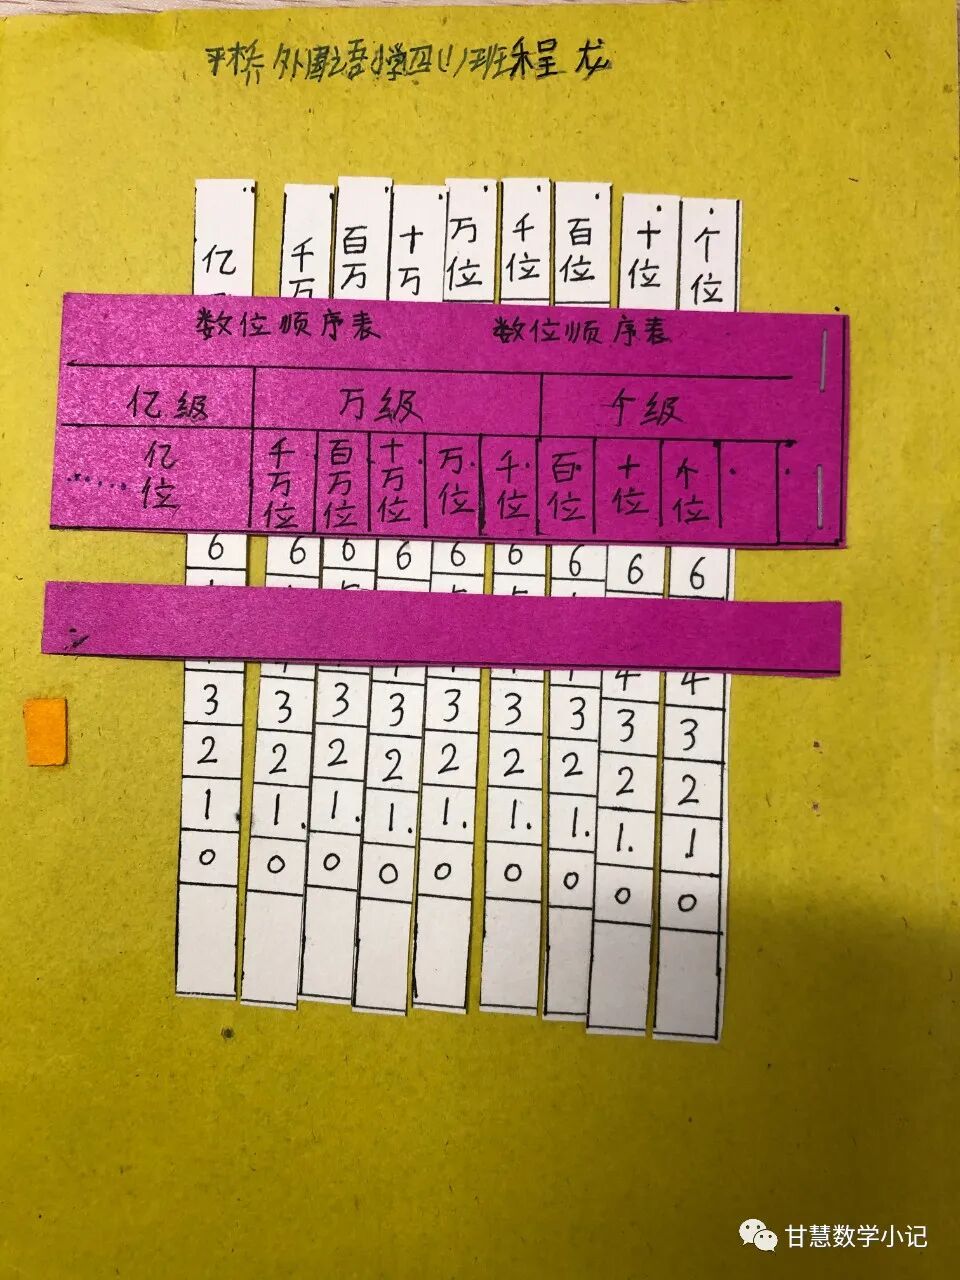 平桥外国语小学四(1)班程龙
亿 千万 百万 十万 万位 千位 百位 十位 个位
数位顺序表 数位顺序表
亿级 万级 个级
…… 亿位 千万位 百万位 十万位 万位 千位 百位 十位 个位
6 6 6 6 6 6 6 6 6
4 4
3 3 3 3 3 3 3 3 3
2 2 2 2 2 2 2 2 2
1 1. 1. 1. 1. 1. 1. 1. 1
0 0 0 0 0 0 0 0 0
甘慧数学小记